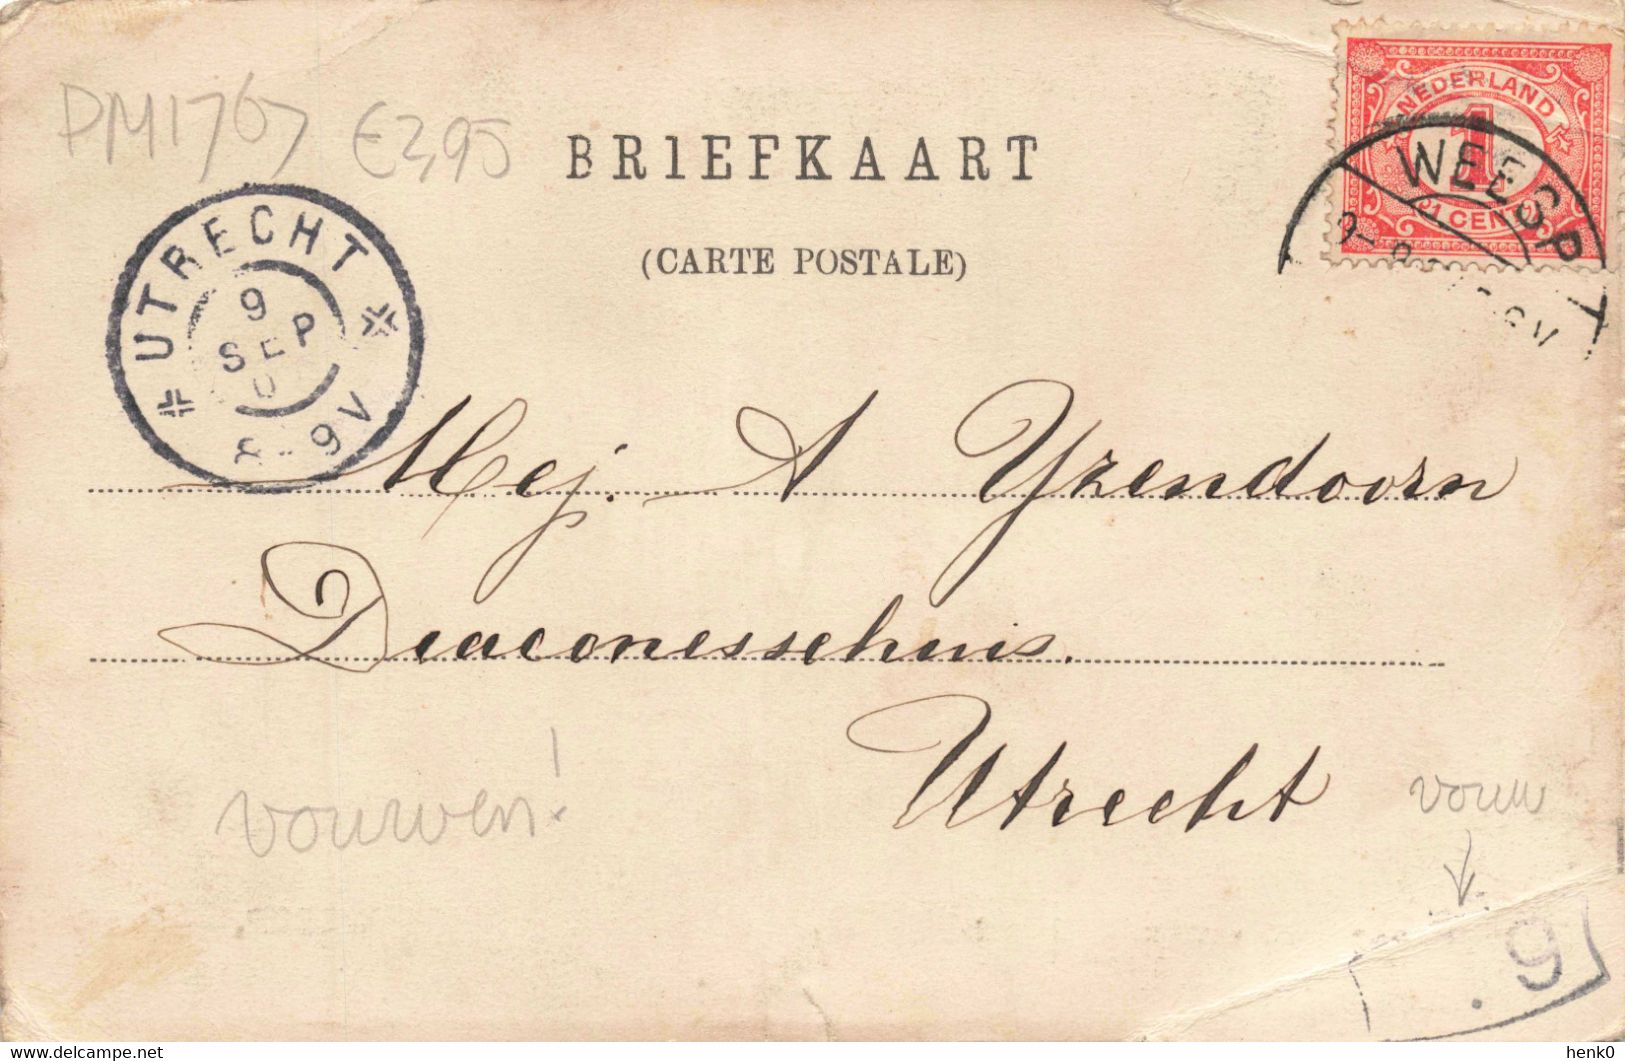 PM1767 €3,95
BRIEFKAART
(CARTE POSTALE)
NEDERLAND
1
1 CENT
WEESP
UTRECHT
9
SEP
8-9V
Mej. A Yzendoorn
Deaconessehuis.
Utrecht
vouwen!
vouw
9
henk0